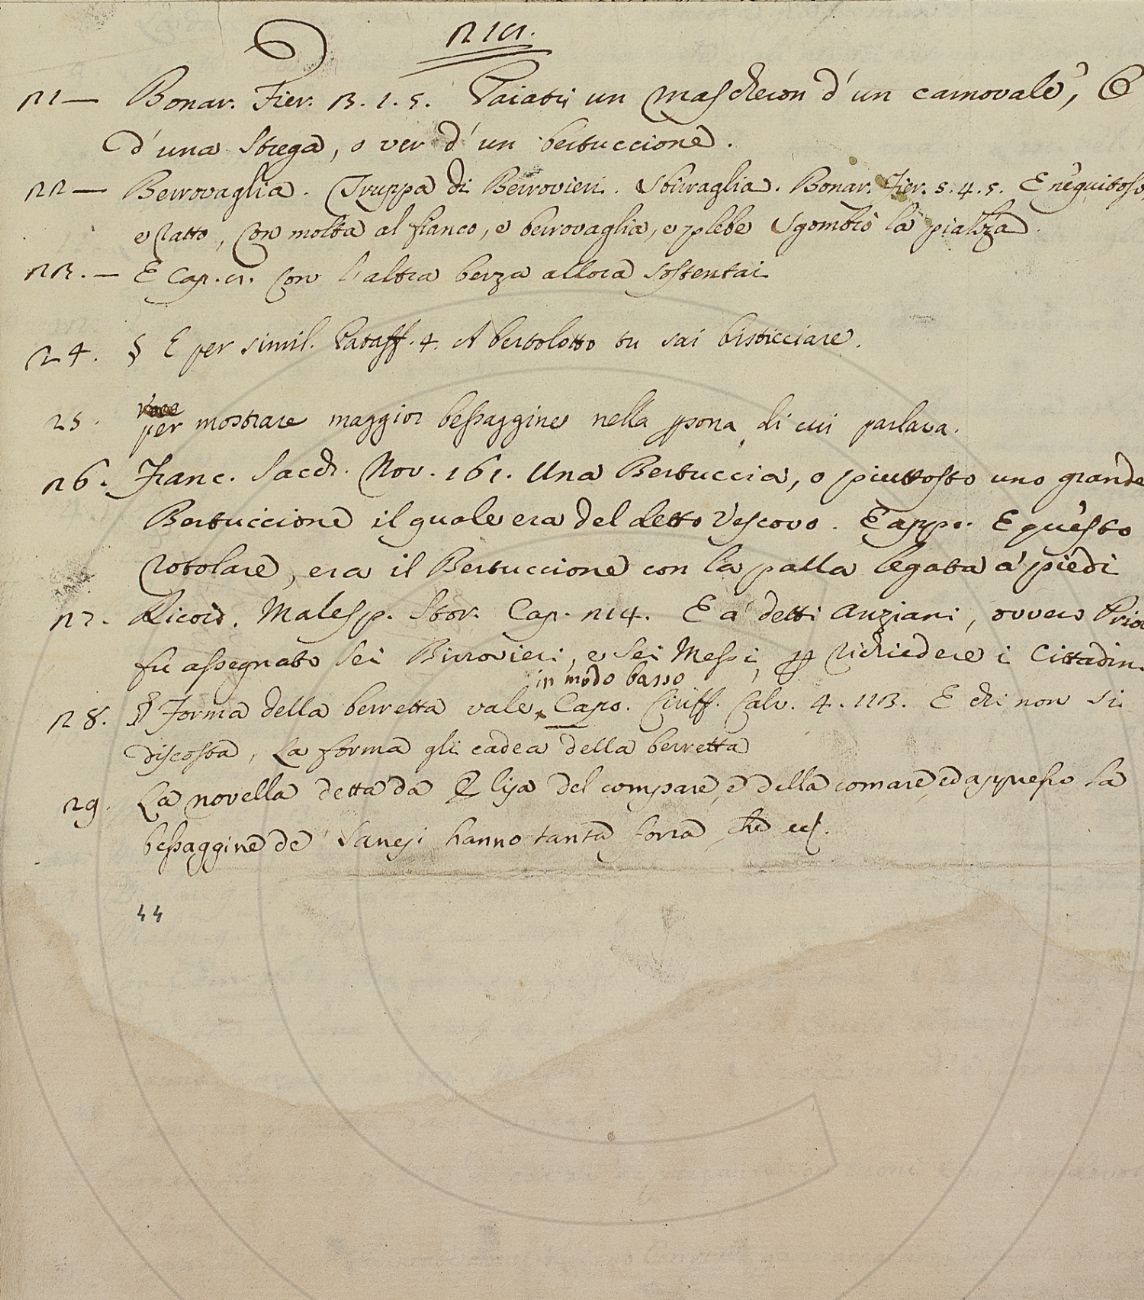 219.
21— Bonar. Fier. 3. 1. 5. Paiati un mascheron d'un carnovale, O
d'una Strega, o ver d'un bertuccione.
22— Berrovaglia. Truppa di Berrovieri. Sbirraglia. Bonar. Fier. 5. 4. 5. E nequitoso
e ratto, Con molta al fianco, e berrovaglia, e plebe Sgombrò la piazza.
23.— E Cap. 9. Con l'altra berza allora sostentai
24. § E per simil. Pataff. 4. A bertolotto tu sai bisticciare.
25. per mostrare maggior bessaggine nella psona di cui parlava.
26. Franc. Sacch. Nov. 161. Una Bertuccia, o piuttosto uno grande
Bertuccione il quale era del detto Vescovo. E appo. E questo
rotolare, era il Bertuccione con la palla legata a' piedi
27. Ricord. Malesp. Stor. Cap. 214. E a' detti Anziani, ovvero Prior
fu assegnato sei Birrovieri, e sei Messi, p richiedere i Cittadin.
in modo basso
28. § Forma della berretta vale Capo. Ciriff. Calv. 4. 113. E chi non si
discosta, La forma gli cadea della berretta
29. La novella detta da Elisa del compare, e della comare, ed appresso la
bessaggine de' Sanesi hanno tanta forza, che ec.
44